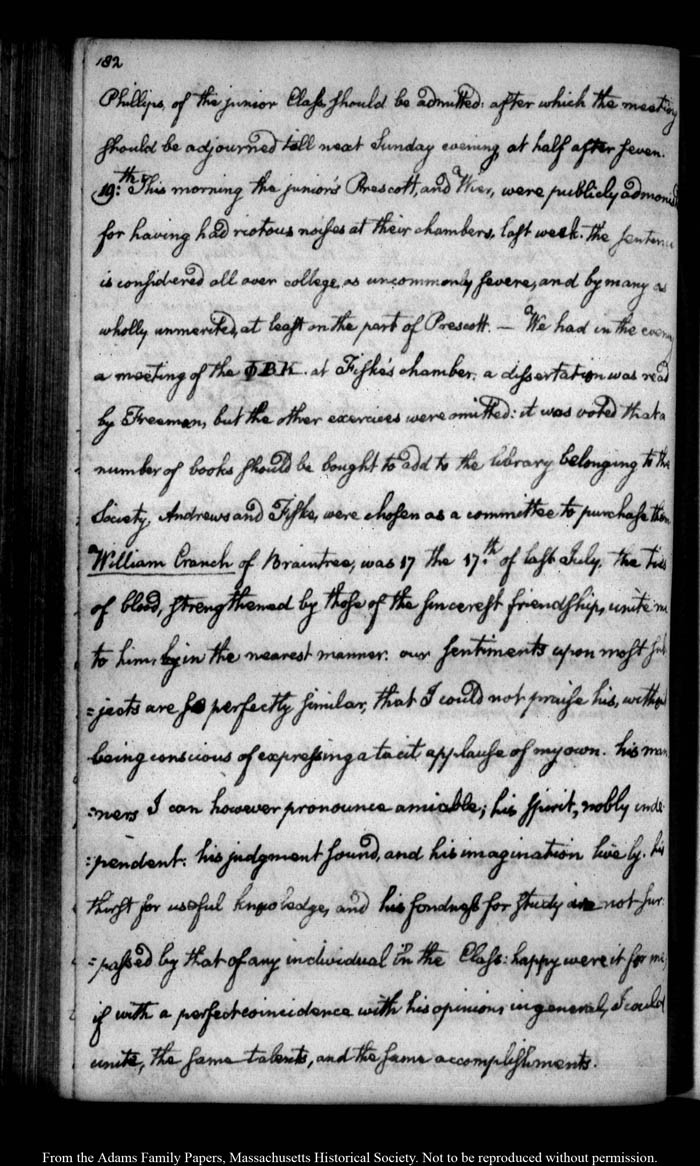 182
Phillips, of the junior Class, should be admitted: after which the meeting
should be adjourned till next Sunday evening, at half after seven.
19:th This morning the junior's Prescott, and Wier, were publicly admonish
for having had riotous noises at their chambers, last week. the sentence
is considered all over college, as uncommonly severe, and by many as
wholly unmerited, at least on the part of Prescott. — We had in the evening
a meeting of the ΦBK. at Fiske's chamber. a dissertation was read
by Freeman, but the other exercises were omitted: it was voted that a
number of books should be bought to add to the library belonging to the
Society, Andrews and Fiske, were chosen as a committee to purchase them
William Cranch of Braintree, was 17 the 17:th of last July. the ties
of blood, strengthened by those of the sincerest friendship, unite me
to him, in the nearest manner. our sentiments upon most sub
=jects are so perfectly similar, that I could not praise his, without
being conscious of expressing a tacit applause of my own. his man
=ners I can however pronounce amiable; his spirit, nobly inde
=pendent: his judgment sound, and his imagination lively. his
thirst for useful knowledge, and his fondness for study are not sur
=passed by that of any individual in the Class: happy were it for me,
if with a perfect coincidence with his opinions in general, I could
unite, the same talents, and the same accomplishments.
From the Adams Family Papers, Massachusetts Historical Society. Not to be reproduced without permission.